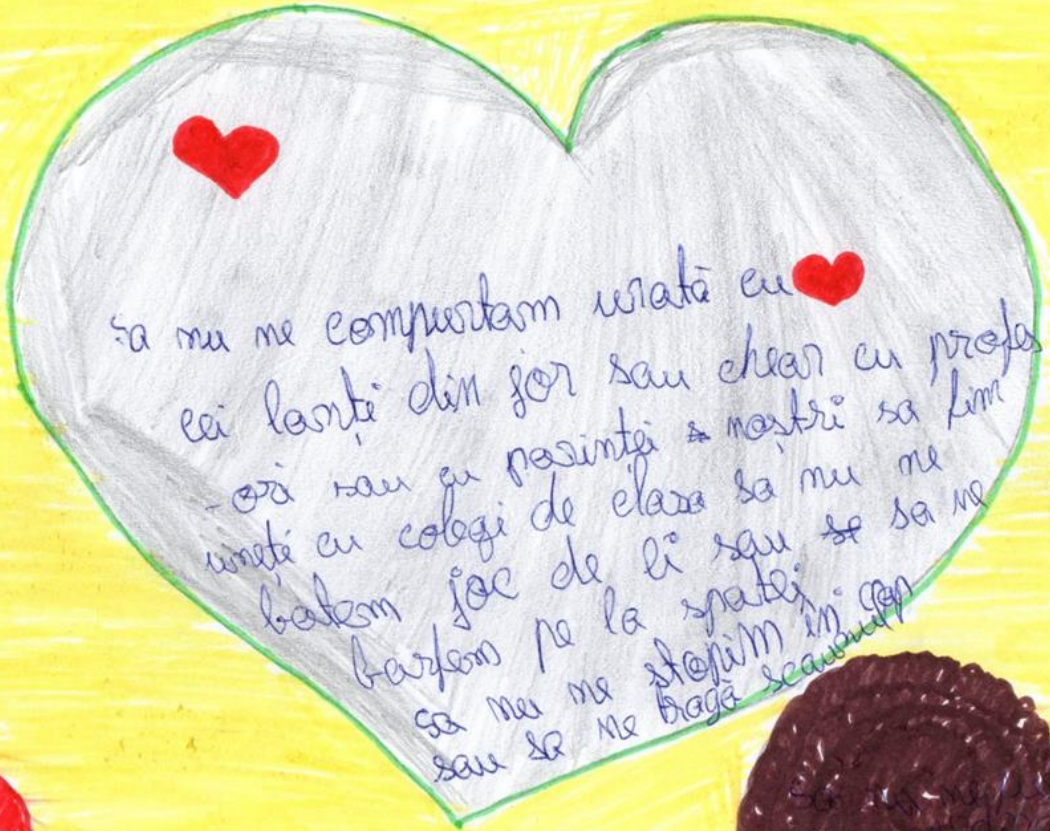 sa nu ne compurtam urată cu
cei lanți din jor sau chear cu profes
-ori sau cu parinței noștri sa fim
uneți cu colegi de clasa sa nu ne
batem joc de li sau sa ne
barfem pe la spatei
sa nu ne stopim in cap
sau sa ne tragă scaunu